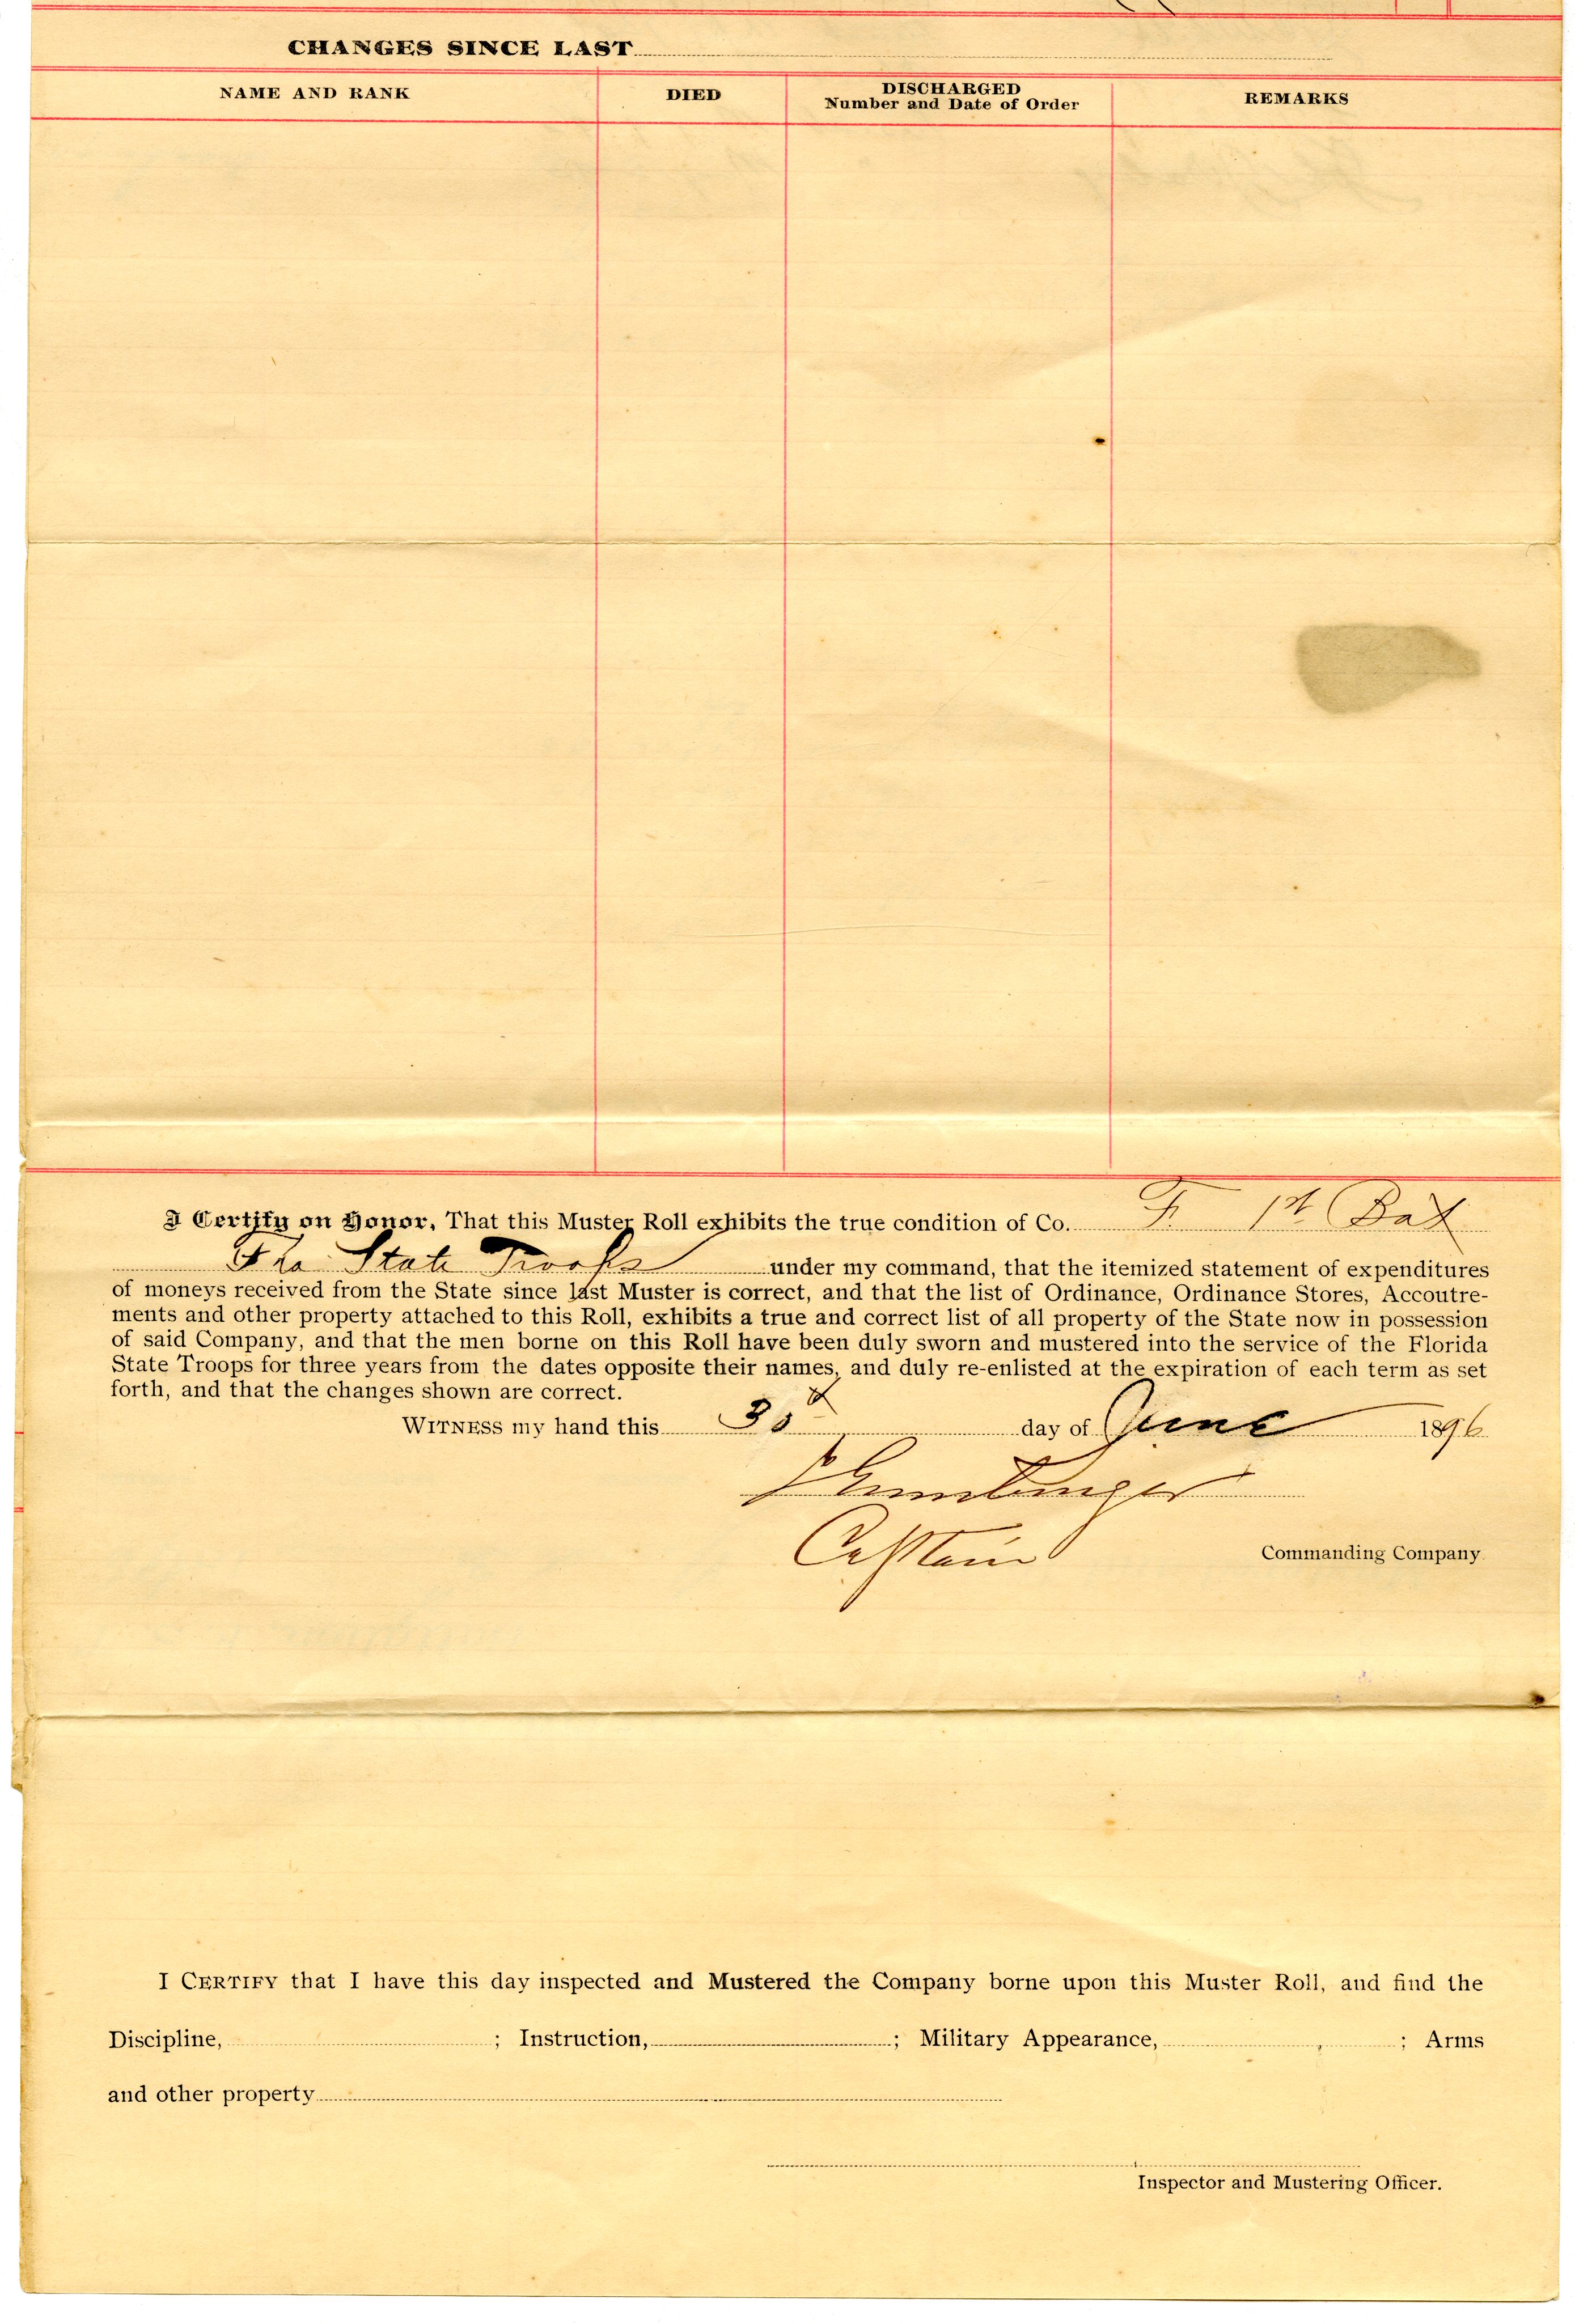 CHANGES SINCE LAST
NAME AND RANK DIED DISCHARGED REMARKS
Number and Date of Order
I Certify on Honor, That this Muster Roll exhibits the true condition of Co. F. 1st Bat
Fla State Troops under my command, that the itemized statement of expenditures
of moneys received from the State since last Muster is correct, and that the list of Ordinance, Ordinance Stores, Accoutre-
ments and other property attached to this Roll, exhibits a true and correct list of all property of the State now in possession
of said Company, and that the men borne on this Roll have been duly sworn and mustered into the service of the Florida
State Troops for three years from the dates opposite their names, and duly re-enlisted at the expiration of each term as set
forth, and that the changes shown are correct.
WITNESS my hand this 30th day of June 1896
Captain Commanding Company
I CERTIFY that I have this day inspected and Mustered the Company borne upon this Muster Roll, and find the
Discipline, ; Instruction, ; Military Appearance, ; Arms
and other property
Inspector and Mustering Officer.